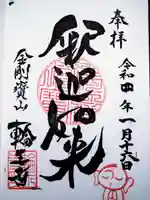 奉拝
令和四年一月十六日
釈迦如来
金剛寶山
輪王寺